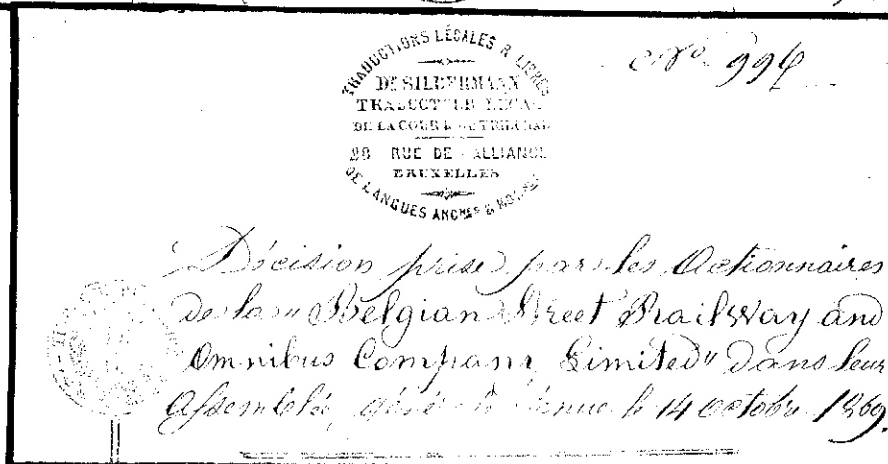 No 994
TRADUCTIONS LÉGALES & LIBRES
Dr SILBERMANN
TRADUCTEUR LEGAL
DE LA COUR & DU TRIBUNAL
28 RUE DE L'ALLIANCE
BRUXELLES
DE LANGUES ANCNES &
Décision prise par les Actionnaires
de la "Belgian Street Railway and
Omnibus Company Limited" dans leur
Assemblée tenue le 14 octobre 1869.